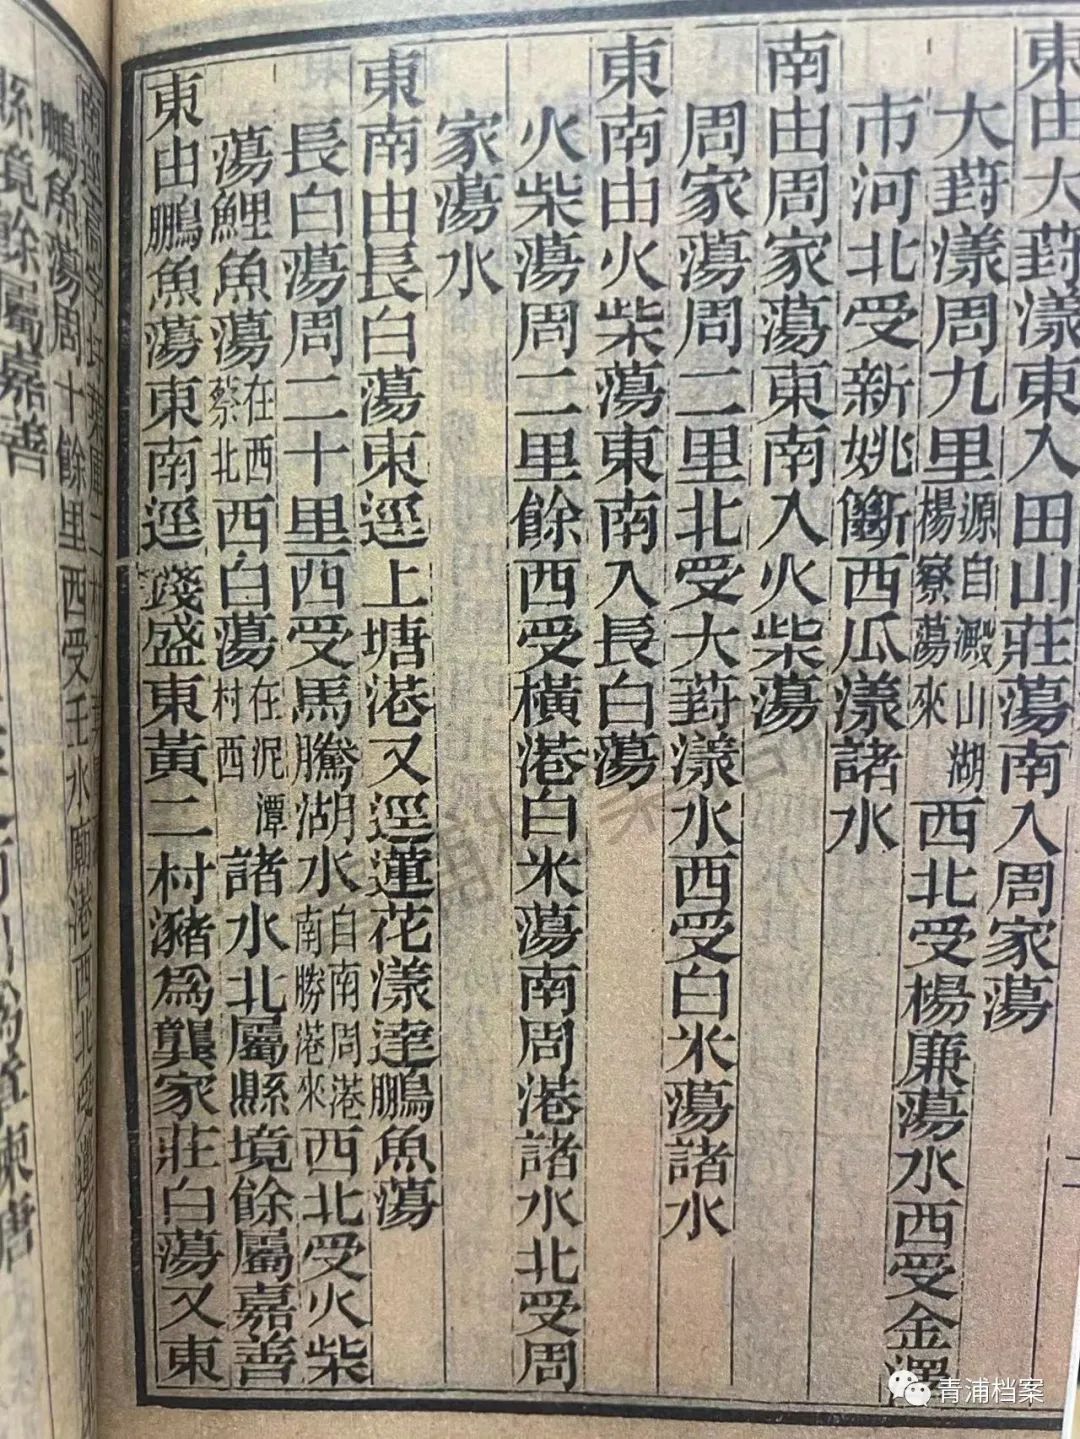 東由大葑漾東入田山莊蕩南入周家蕩
大葑漾周九里源自澱山湖楊寮蕩來西北受楊廉蕩水西受金澤
市河北受新姚籪西瓜漾諸水
南由周家蕩東南入火柴蕩
周家蕩周二里北受大葑漾水西受白米蕩諸水
東南由火柴蕩東南入長白蕩
火柴蕩周二里餘西受橫港白米蕩南周港諸水北受周
家蕩水
東南由長白蕩東逕上塘港又逕蓮花漾達鵬魚蕩
長白蕩周二十里西受馬騰湖水自南周港南勝港來西北受火柴
蕩鯉魚蕩在西蔡北西白蕩在泥潭村西諸水北屬縣境餘屬嘉善
東由鵬魚蕩東南逕錢盛東黃二村瀦爲龔家莊白蕩又東
鵬魚蕩周十餘里西受壬水廟港西北受
縣境餘屬嘉善
青浦档案